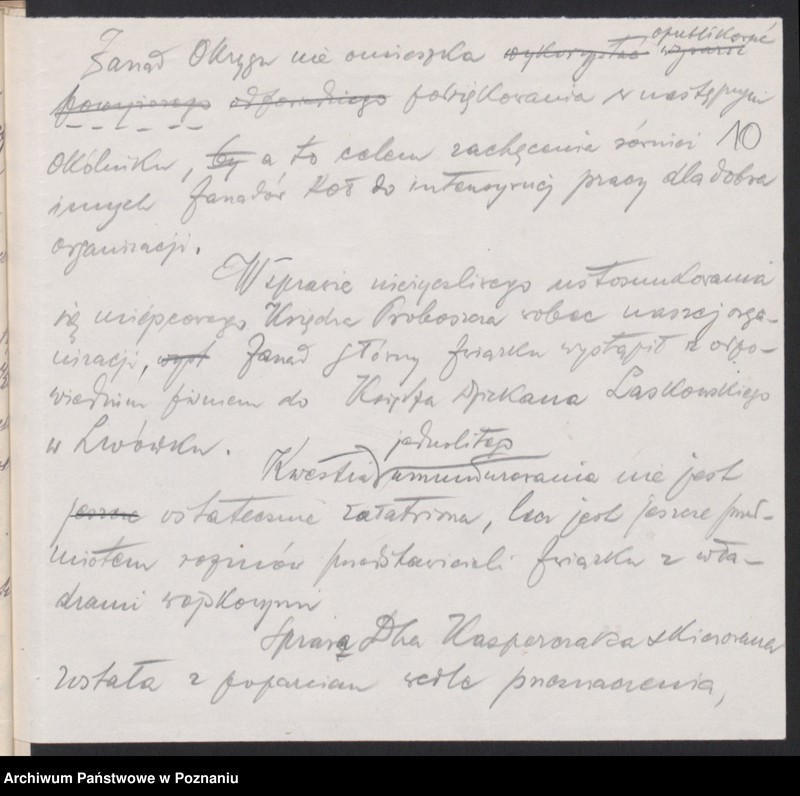 opublikować
Zarząd Okręgu nie omieszka wykorzystać wyrazić
powyższego odpowiedniego podziękowania w następnym
okólniku, by a to celem zachęcenia również 10
innych Zarządów Kół do intensywnej pracy dla dobra
organizacji.
W sprawie nieżyczliwego ustosunkowania
się miejscowego Księdza Proboszcza wobec naszej orga-
nizacji, wyst Zarząd Główny Związku wystąpił z odpo-
wiednim pismem do Księdza Dziekana Laskowskiego
w Lwówku.
jednolitego
Kwestia umundurowania nie jest
jeszcze ostatecznie załatwiona, lecz jest jeszcze przed-
miotem rozmów przedstawicieli Związku z wła-
dzami wojskowymi
Sprawa Dha Kasperczaka skierowana
została z poparciem wedle przeznaczenia,
Archiwum Państwowe w Poznaniu